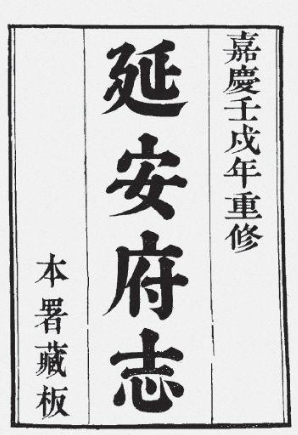 嘉慶壬戌年重修
延安府志
本署藏板